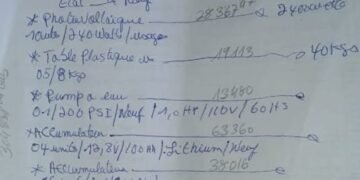 Etat Neuf
* Photovoltaïque 28367 2400watts
10unite/240Watts/usage
* Table Plastique 19113 40Kgs
05/8Kgs
* Pump a eau 13480
01/200 PSI/Neuf/1,0HP/110V/60Hz
*Accumulateur 63360
04 unite/12,8V/100AA/Lithium/Neuf
* Accumulateur 38016